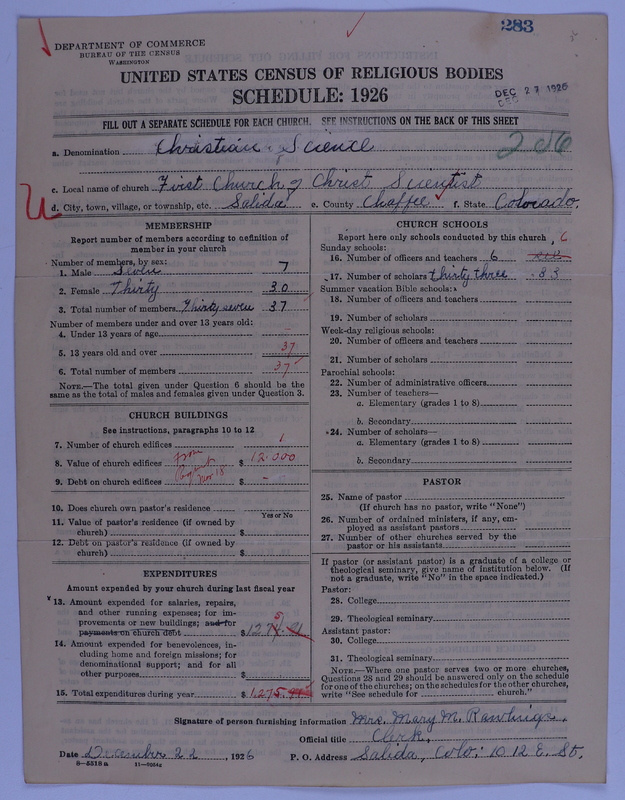 283
DEPARTMENT OF COMMERCE
BUREAU OF THE CENSUS
WASHINGTON
UNITED STATES CENSUS OF RELIGIOUS BODIES
SCHEDULE: 1926
DEC 27 1926
DEC
FILL OUT A SEPARATE SCHEDULE FOR EACH CHURCH. SEE INSTRUCTIONS ON THE BACK OF THIS SHEET
a. Denomination Christian Science
c. Local name of church First Church of Christ Scientist
d. City, town, village, or township, etc. Salida e. County Chaffee f. State Colorado.
MEMBERSHIP
Report number of members according to definition of
member in your church
Number of members, by sex:
1. Male Seven 7
2. Female Thirty 30
3. Total number of members Thirty seven 37
Number of members under and over 13 years old:
4. Under 13 years of age
5. 13 years old and over 37
6. Total number of members 37
NOTE.—The total given under Question 6 should be
same as the total of males and females given under Question 3.
CHURCH BUILDINGS
See instructions, paragraphs 10 to 12
7. Number of church edifices 1
8. Value of church edifices $ 12.000
9. Debt on church edifices $ -
10. Does church own pastor's residence
Yes or No
11. Value of pastor's residence (if owned by
church) $
12. Debt on pastor's residence (if owned by
church) $
EXPENDITURES
Amount expended by your church during last fiscal year
13. Amount expended for salaries, repairs,
and other running expenses; for im-
provements or new buildings; and for
payments on church debt $
14. Amount expended for benevolences, in-
cluding home and foreign missions; for
denominational support; and for all
other purposes $
15. Total expenditures during year $ 1,275.
CHURCH SCHOOLS
Report here only schools conducted by this church
Sunday schools:
16. Number of officers and teachers 6
17. Number of scholars thirty three
Summer vacation Bible schools:
18. Number of officers and teachers
19. Number of scholars
Week-day religious schools:
20. Number of officers and teachers
21. Number of scholars
Parochial schools:
22. Number of administrative officers
23. Number of teachers—
a. Elementary (grades 1 to 8)
b. Secondary
24. Number of scholars—
a. Elementary (grades 1 to 8)
b. Secondary
PASTOR
25. Name of pastor
(If church has no pastor, write "None")
26. Number of ordained ministers, if any, em-
ployed as assistant pastors
27. Number of other churches served by the
pastor or his assistants
If pastor (or assistant pastor) is a graduate of a college or
theological seminary, give name of institution below. (If
not a graduate, write "No" in the space indicated.)
Pastor:
28. College
29. Theological seminary
Assistant pastor:
30. College
31. Theological seminary
NOTE.—Where one pastor serves two or more churches,
Questions 28 and 29 should be answered only on the schedule
for one of the churches; on the schedules for the other churches,
write "See schedule for church."
Signature of person furnishing information Mrs. Mary M. Rawlings,
Official title Clerk,
Date December 22, 1926 P. O. Address Salida, Colo; 1012 E. St.
8—5518a 11—9064a